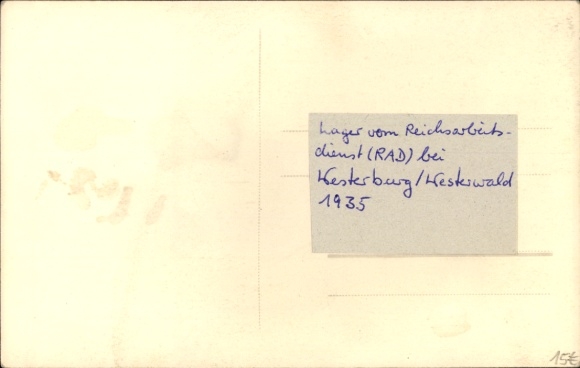 Lager vom Reichsarbeits-
dienst (RAD) bei
Westerburg/Westerwald
1935
15€